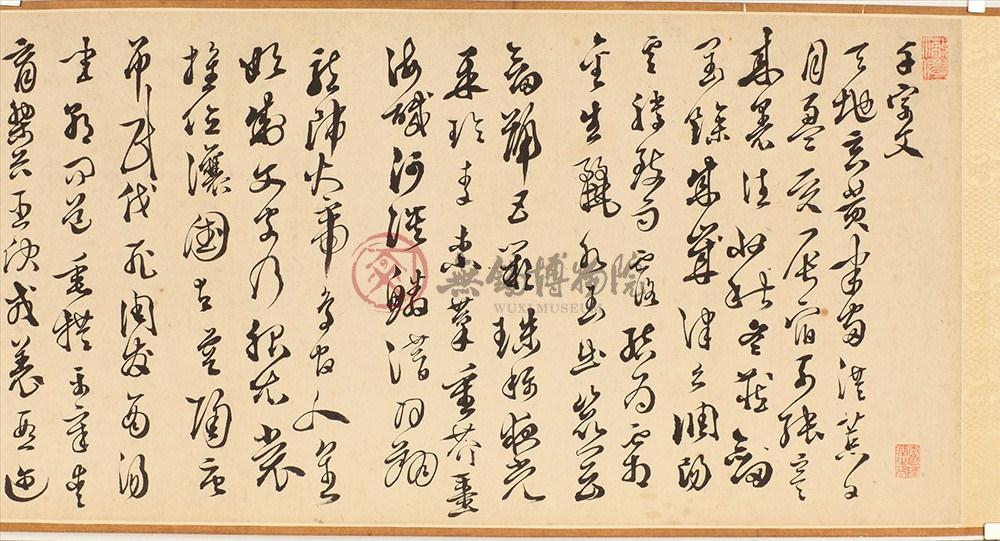 千字文
天地玄黄宇宙洪荒日
月盈昃辰宿列張寒
来暑往秋收冬藏
閏餘成歲律吕調陽
雲騰致雨露結為霜
金生麗水玉出崑岡
劔號巨闕珠稱夜光
菓珍李柰菜重芥薑
海鹹河淡鱗潛羽翔
龍師火帝鳥官人皇
始制文字乃服衣裳
推位讓國有虞陶唐
弔民伐罪周發商湯
坐朝問道垂拱平章愛
育黎首臣伏戎羌遐邇
無錫博物院
WUXI MUSEUM